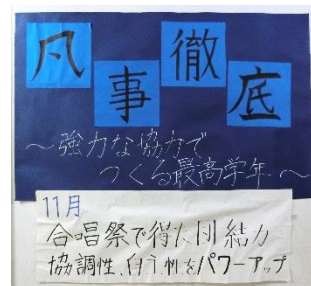 凡事徹底
～強力な協力で
つくる最高学年～
11月
合唱祭で得た団結力
協調性、自主性をパワーアップ